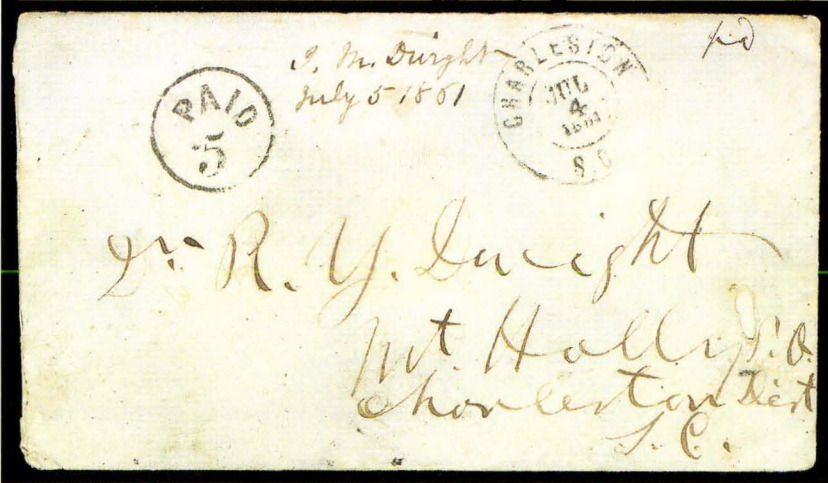 PAID
5
I. M. Dwight
July 5 1861
CHARLESTON
JUL
4
1861
S.C
pd
Dr R. Y. Dwight
Mt. Holly P.O.
Charleston Dist
S.C.